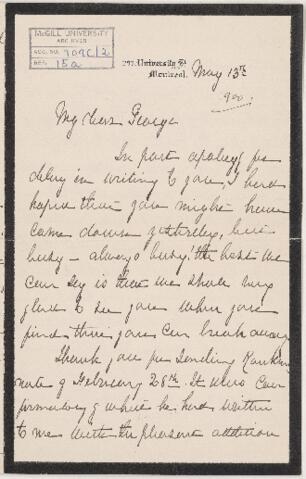 McGILL UNIVERSITY
ARCHIVES
ACC. NO. 909C/2
REF. 15a
293, University St
Montreal.
May 13th
900
My dear George
In part apology for
delay in writing to you, I had
hoped that you might have
come down yesterday, but
busy - always busy! the best we
can say is that we shall be very
glad to see you when you
find that you can break away
Thank you for sending
note of February 28th. It was con
firmatory of what he had written
to me with the pleasant addition